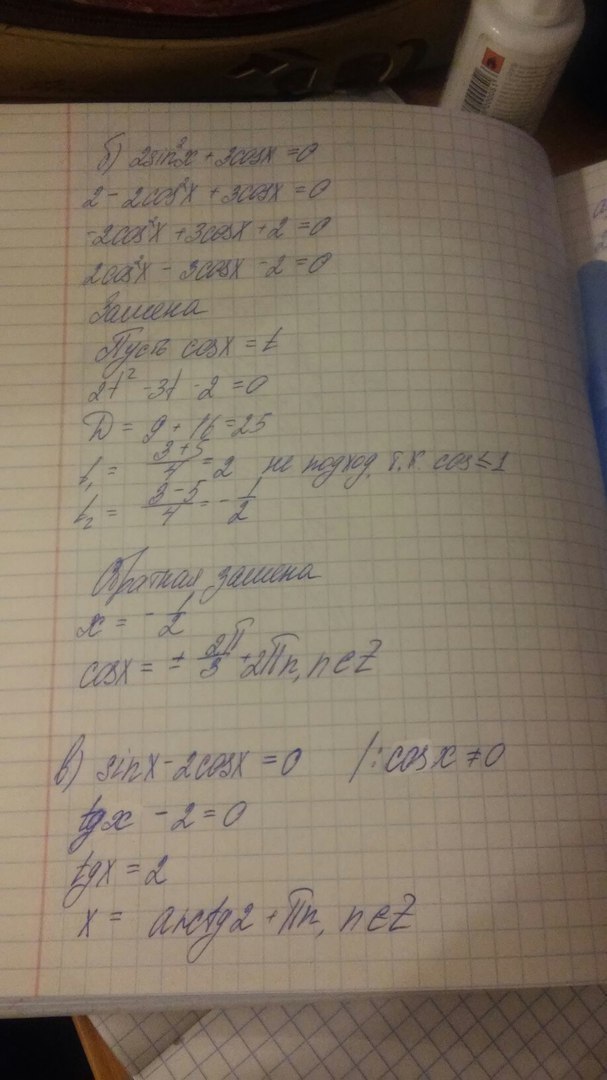 б) 2sin²x + 3cosx = 0
2 - 2cos²x + 3cosx = 0
-2cos²x + 3cosx + 2 = 0
2cos²x - 3cosx - 2 = 0
Замена
Пусть cosx = t
2t² - 3t - 2 = 0
D = 9 + 16 = 25
t₁ = (3+5)/4 = 2 не подход, т.к. cos ≤ 1
t₂ = (3-5)/4 = -1/2
Обратная замена
x = -1/2
cosx = ± 2π/3 + 2πn, n∈Z
в) sinx - 2cosx = 0 /: cosx ≠ 0
tgx - 2 = 0
tgx = 2
x = arctg2 + πn, n∈Z